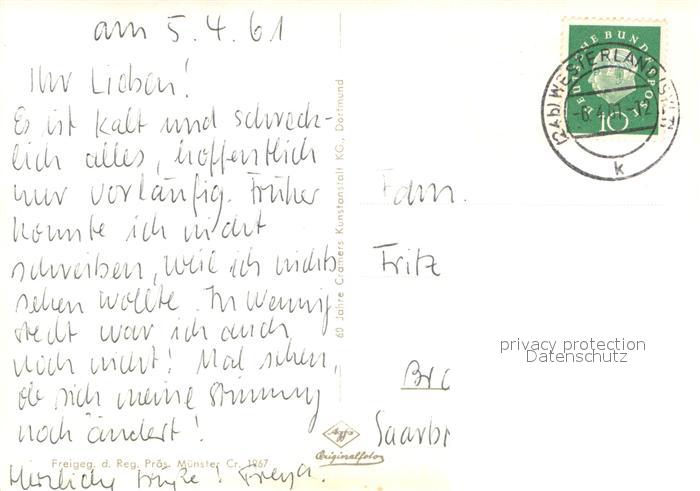 am 5.4.61
Ihr Lieben!
Es ist kalt und schreck-
lich alles, hoffentlich
nur vorläufig. Früher
konnte ich nicht
schreiben, weil ich nichts
sehen wollte. In Wennig-
stedt war ich auch
noch nicht! Mal sehen,
ob sich meine Stimmung
noch ändert!
Herzliche Grüße! Freya.
Freigeg. d. Reg. Präs. Münster Cr. 1967
60 Jahre Cramers Kunstanstalt KG., Dortmund
Agfa
Originalfoto
DEUTSCHE BUNDESPOST
10
(24b) WESTERLAND (SYLT)
-6.4.61-12
k
Fam.
Fritz
Saarbr
privacy protection
Datenschutz